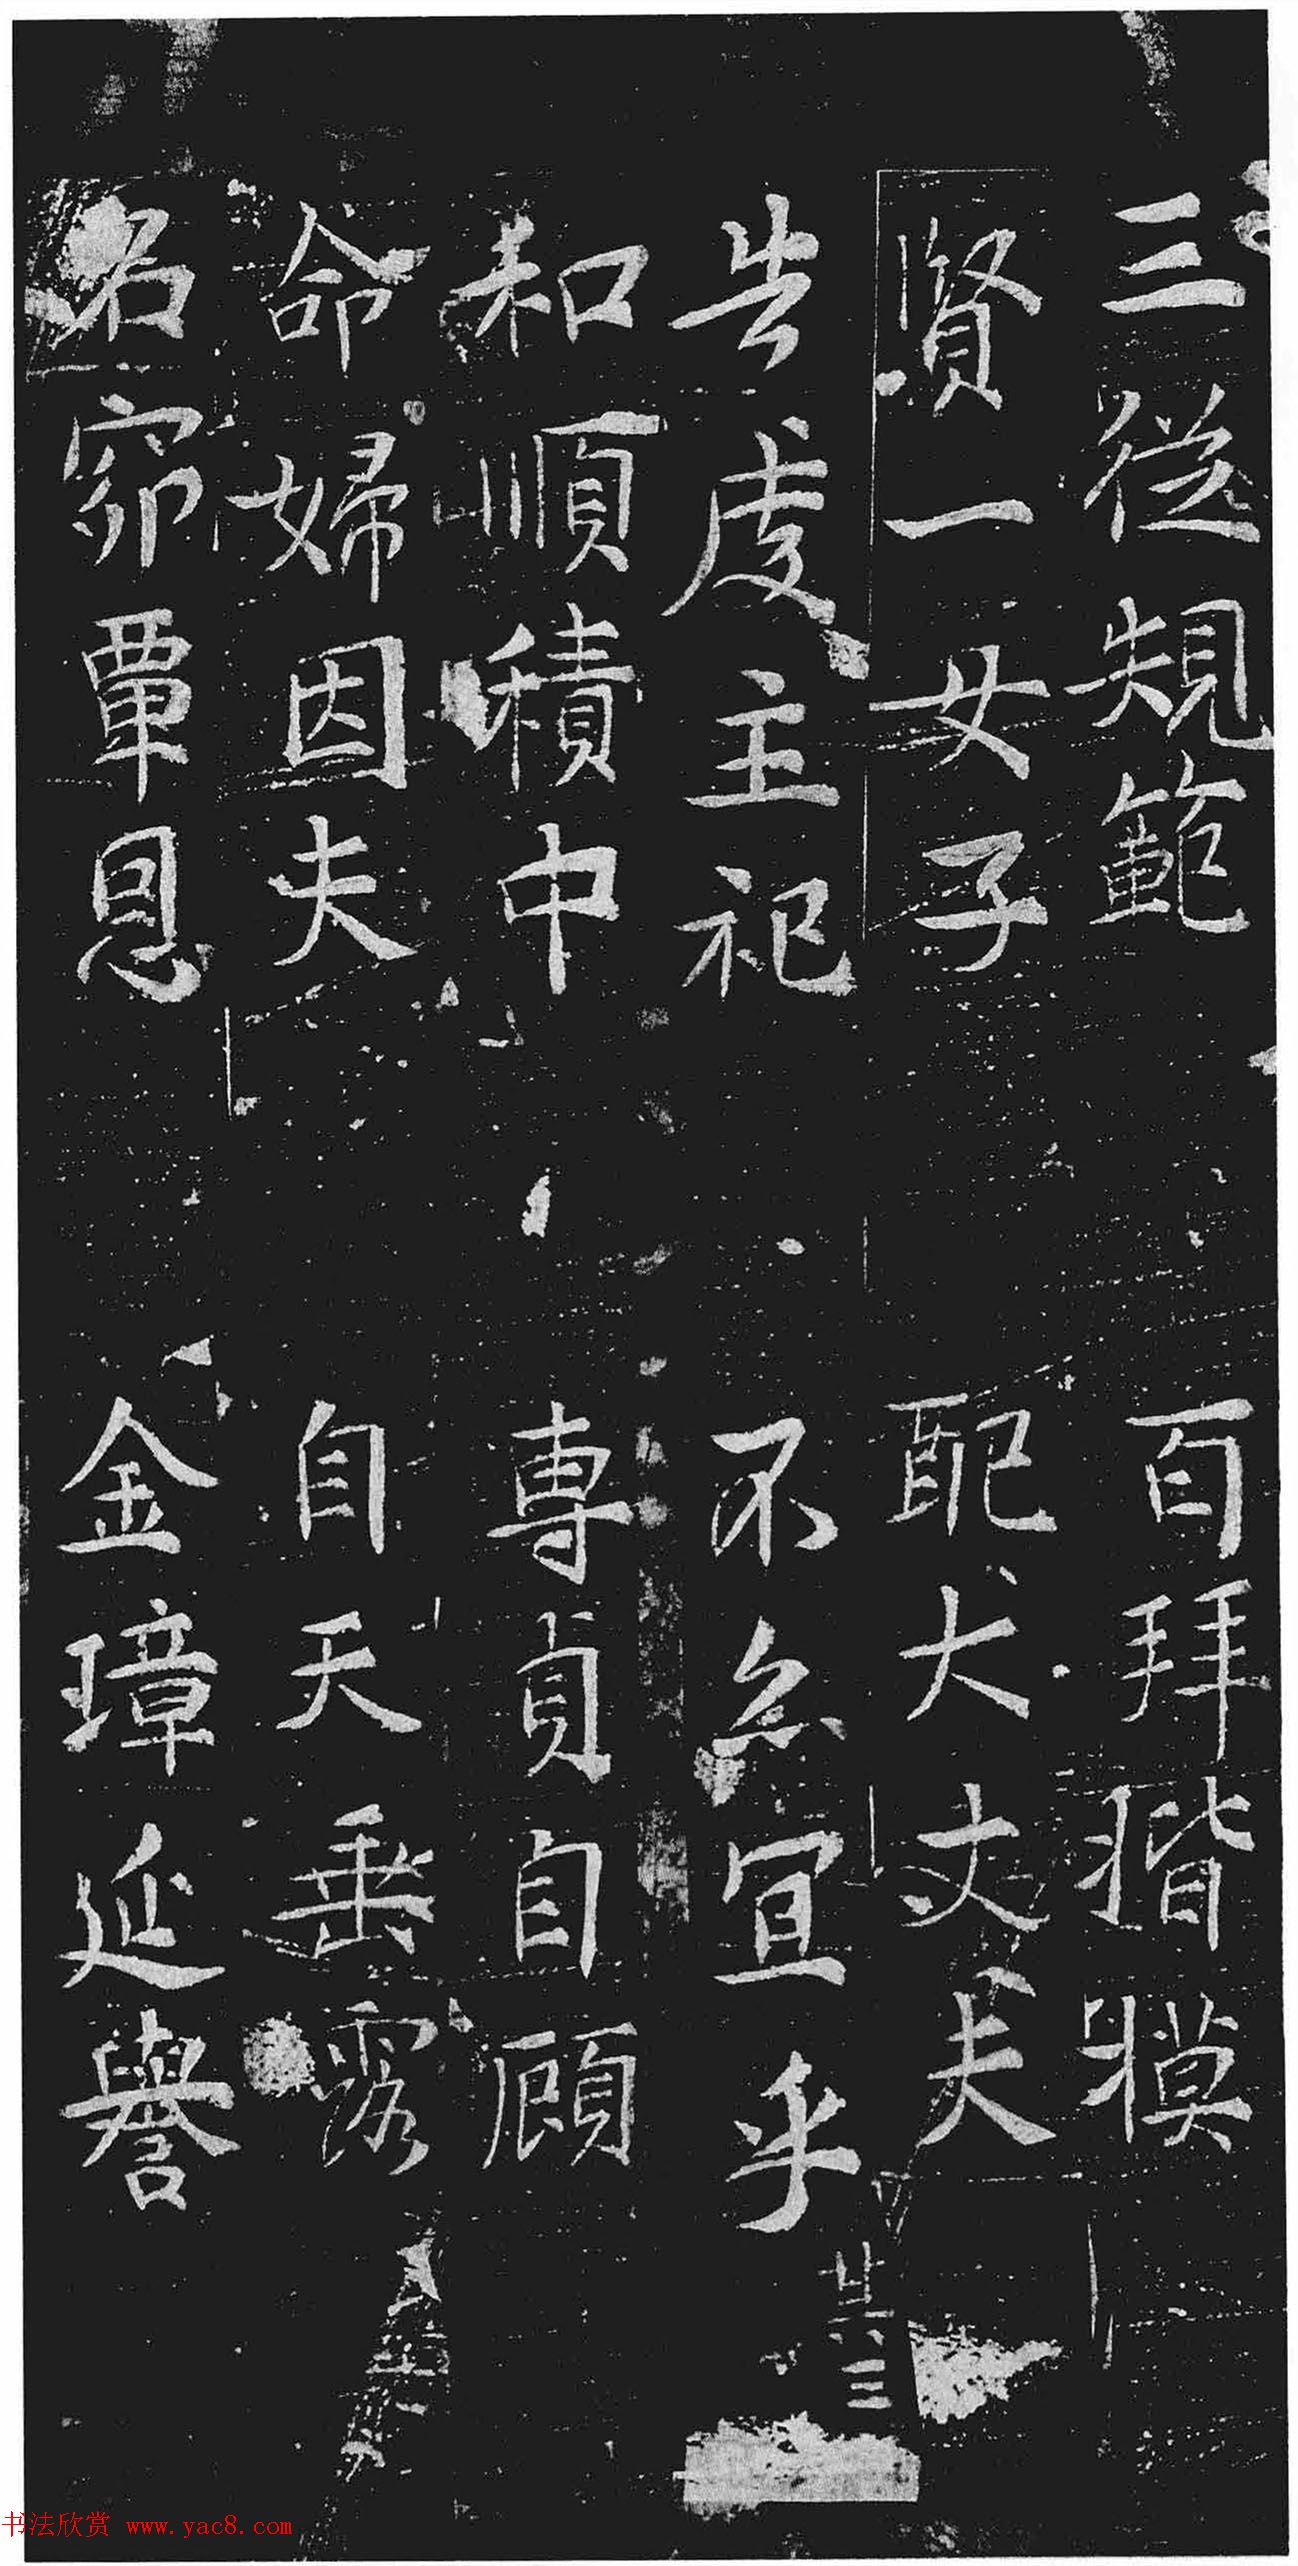 三從規範百拜楷模
賢一女子配大丈夫
告虔主祀不亦宜乎
廿六三
和順積中專貞自顧
命婦因夫自天垂露
石窌覃恩金璋延譽
书法欣赏 www.yac8.com